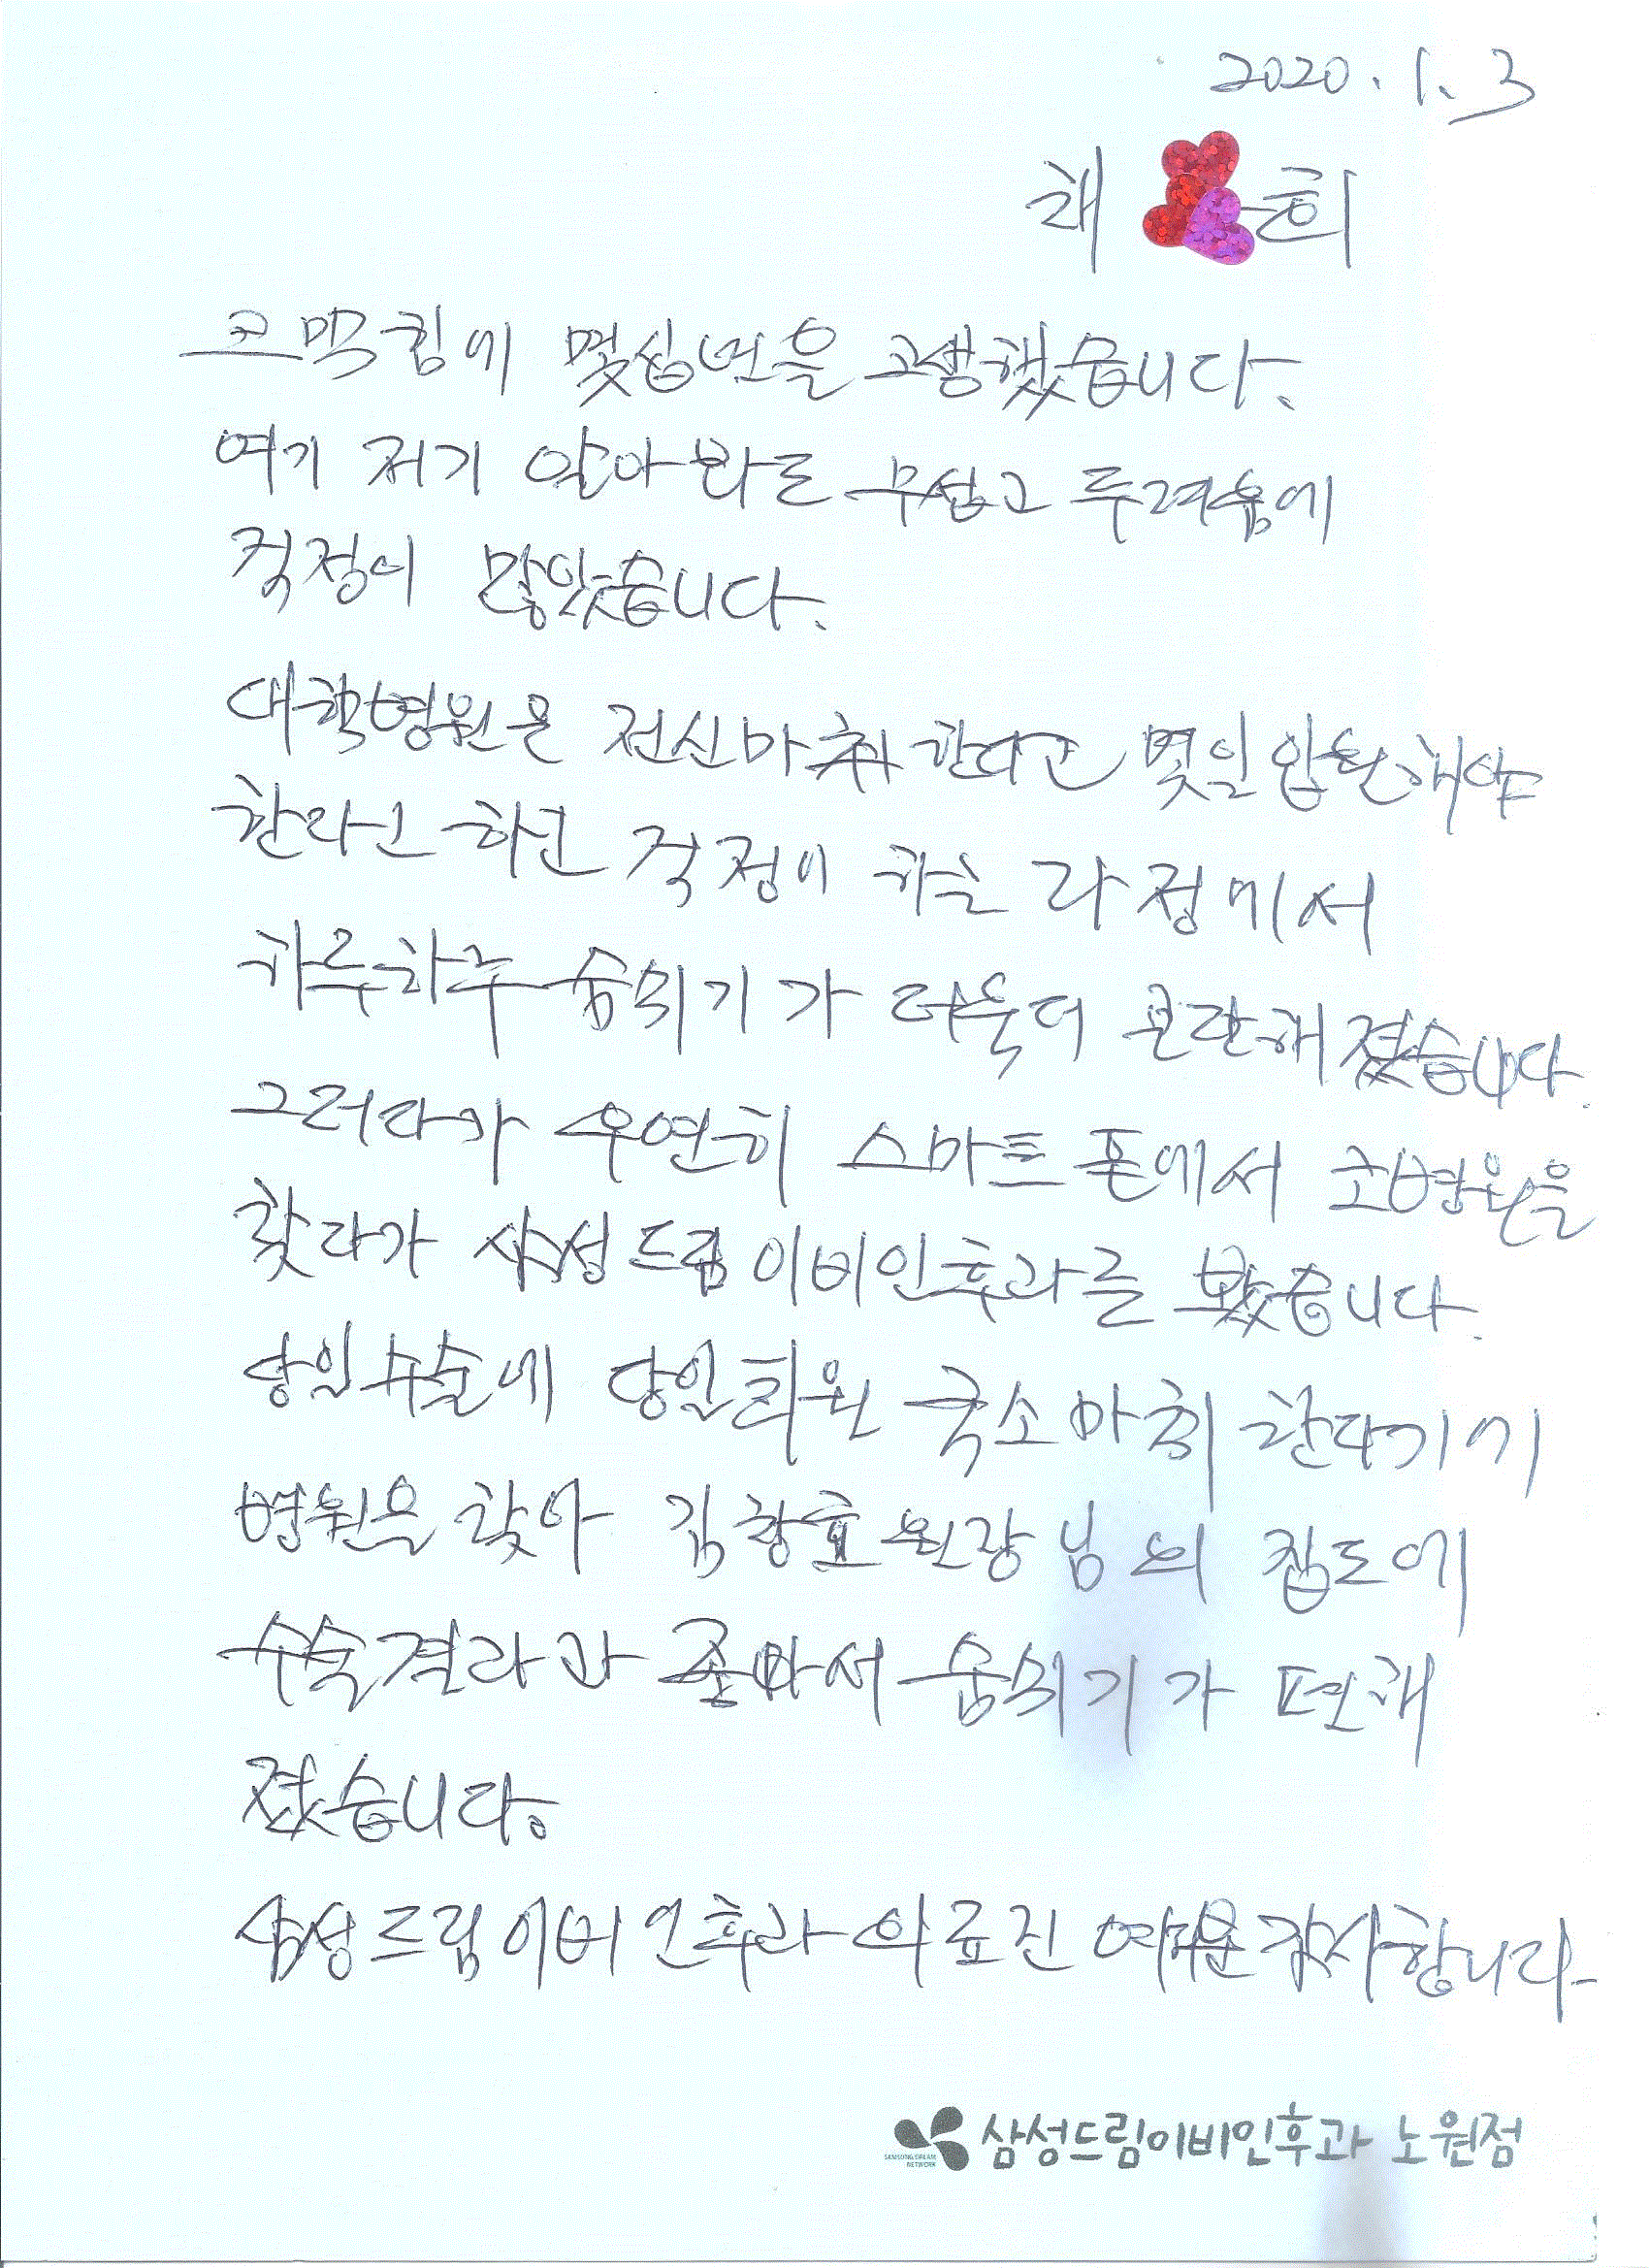 2020. 1. 3
채 희
코막힘에 몇십년을 고생했습니다.
여기 저기 알아봐도 무섭고 두려움에
걱정이 많았습니다.
대학병원은 전신마취한다고 몇일 입원해야
한다고 하고 걱정이 하는 과정에서
하루하루 숨쉬기가 더욱더 곤란해졌습니다.
그러다가 우연히 스마트폰에서 코병원을
찾다가 삼성드림이비인후과를 봤습니다.
당일수술에 당일퇴원 국소마취 한다기에
병원을 찾아 김창효원장님의 집도에
수술결과과 좋아서 숨쉬기가 편해
졌습니다.
삼성드림이비인후과 의료진 여러분 감사합니다
SAMSUNG DREAM
NETWORK
삼성드림이비인후과 노원점